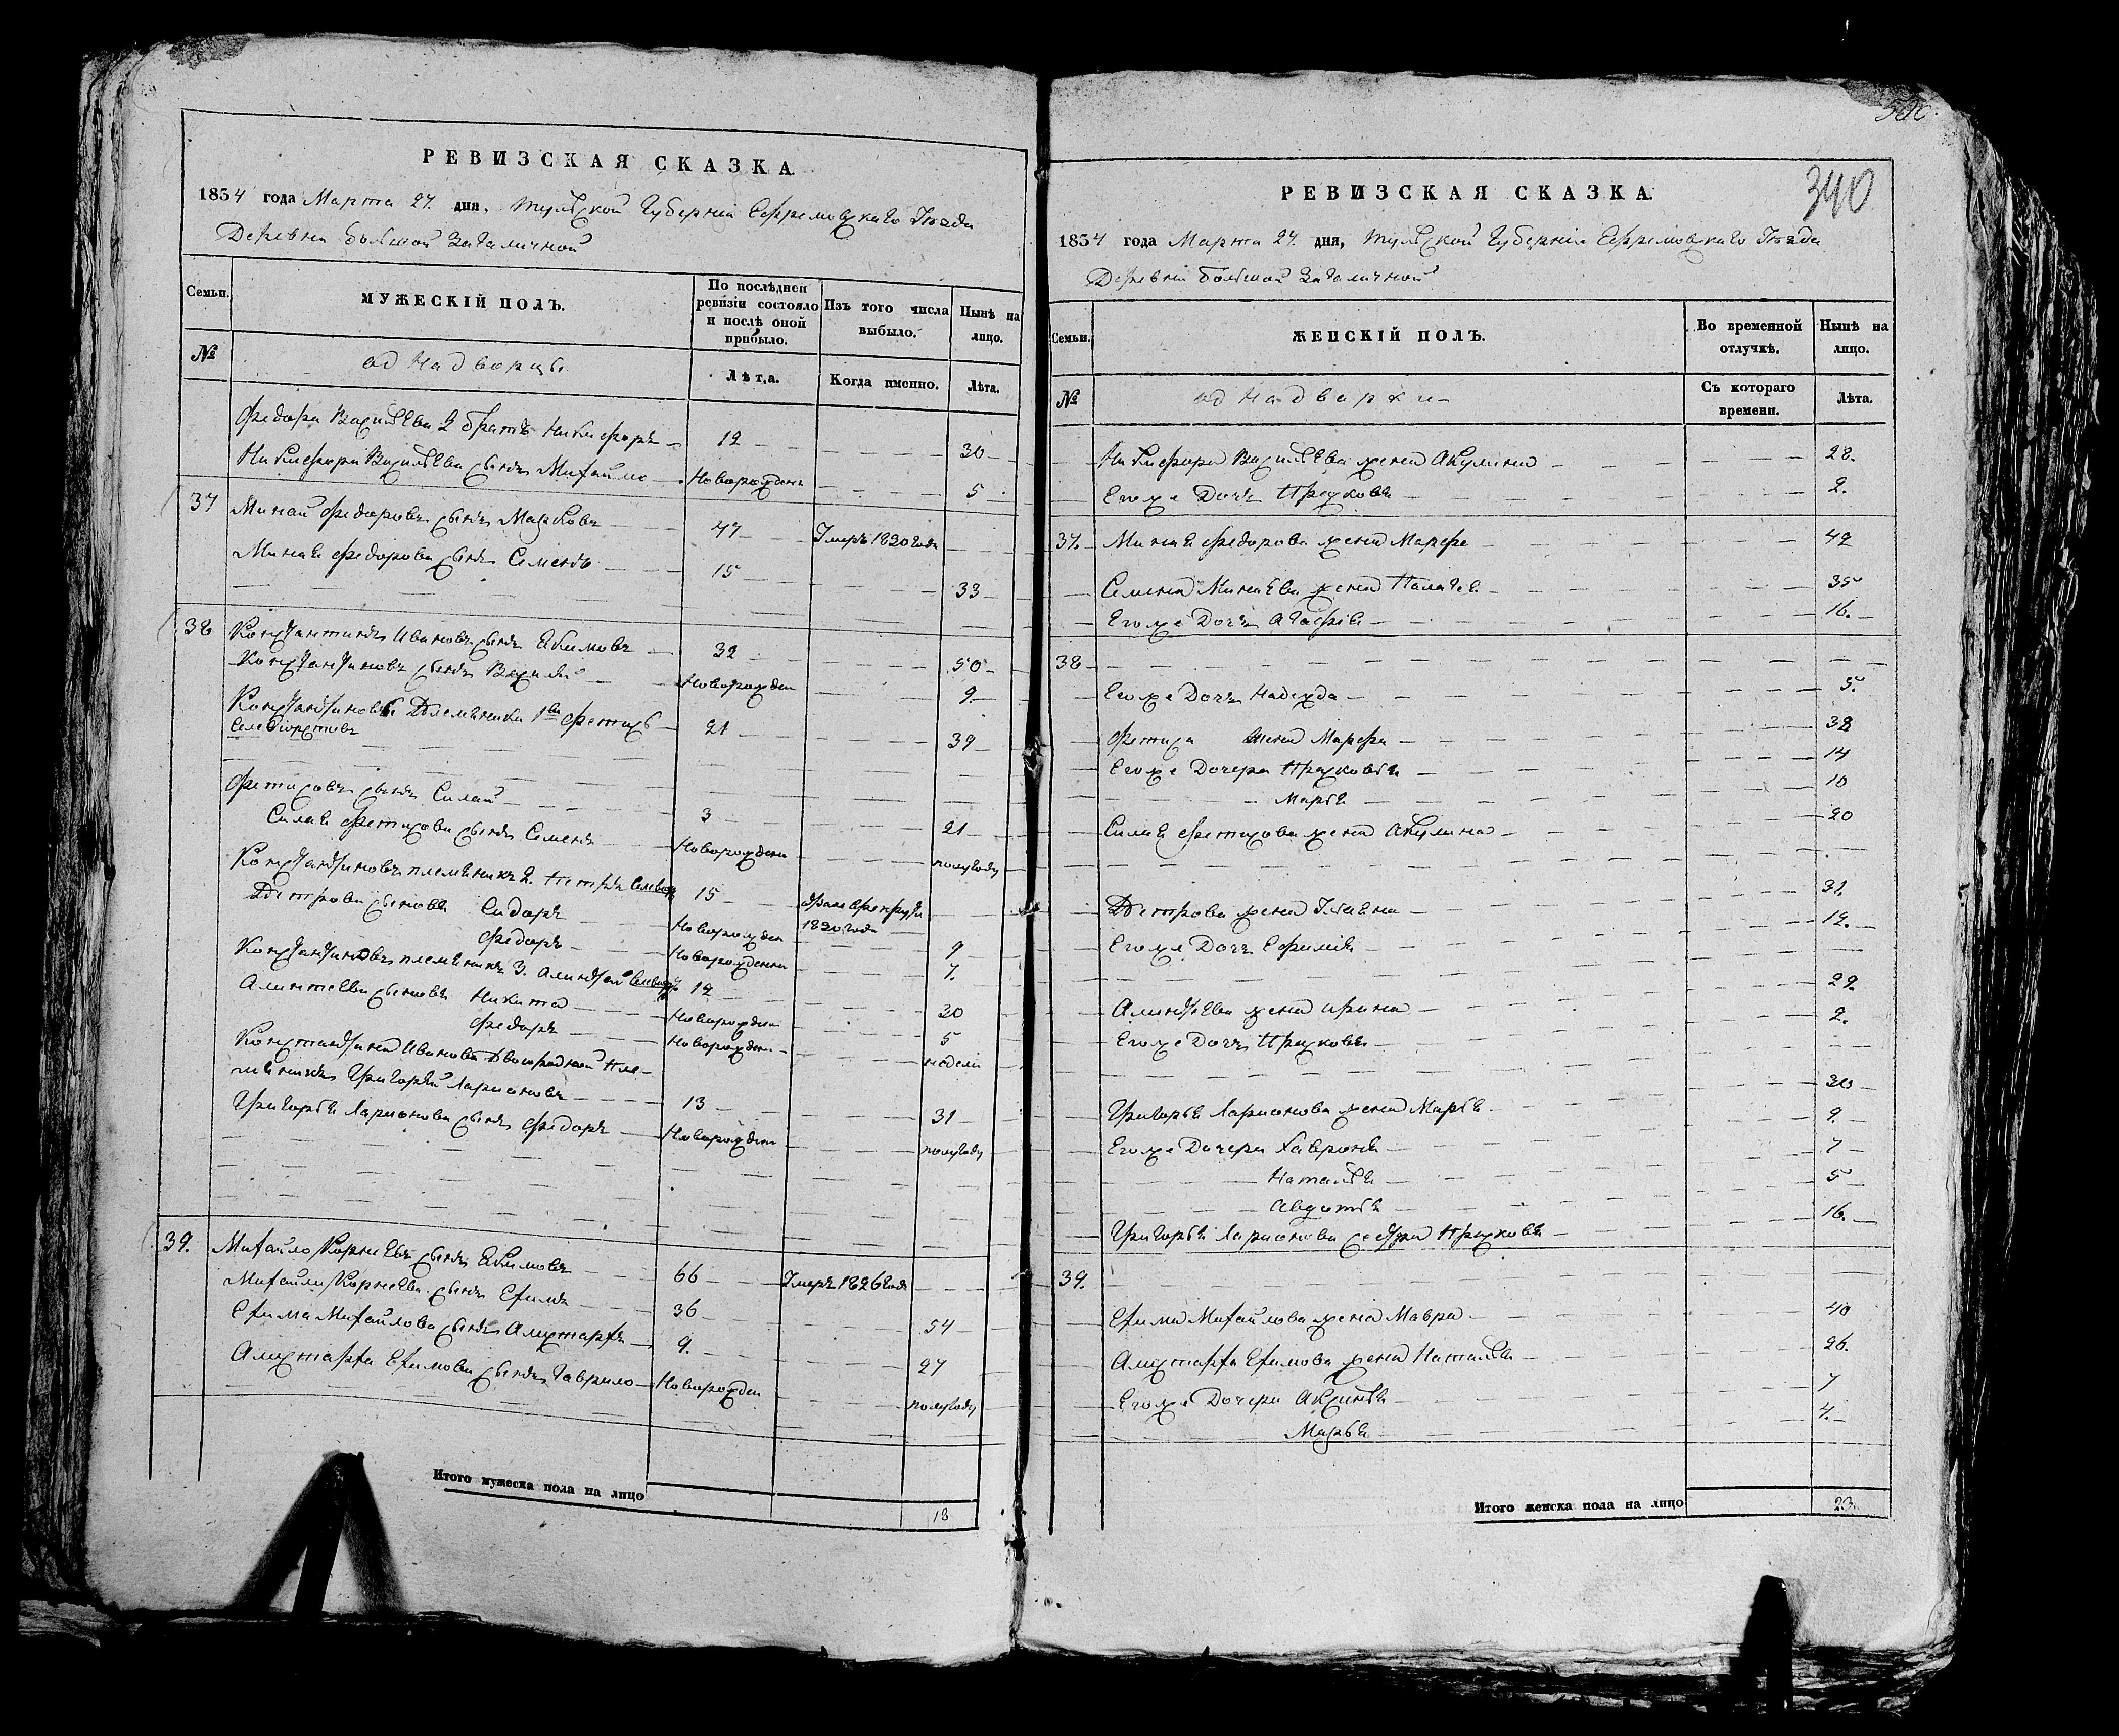 РЕВИЗСКАЯ СКАЗКА.
1834 года Марта 27. дня, Тульской Губерніи Ефремовскаго Уезда
Деревни Большой
Семьи.
МУЖЕСКІЙ ПОЛЪ.
По послѣдней ревизіи состояло и послѣ оной прибыло.
Изъ того числа выбыло.
Нынѣ на лицо.
№
однадворцы
Лѣта.
Когда именно.
Лѣта.
Федора Васильева 2 братъ Никифоръ 12 30
Никифора Васильева сынъ Михайло Новорожден 5
37 Минай Федоровъ сынъ Марковъ 47 Умеръ 1820 года
Миная Федорова сынъ Семенъ 15 33
38 Константинъ Ивановъ сынъ Екимовъ 32 50
Константиновъ сынъ Василій Новорожден 9
Константиновы Племянники 1й Фетисъ 21 39
Селевёрстовъ
Фетисовъ сынъ Силай 3 21
Силая Фетисова сынъ Семенъ Новорожденн полугоду
Константиновъ племянникъ 2. Петръ 15
1820 года
Петровы сыновья Сидоръ Новорожден 9
Федоръ Новорожденны 7.
Константиновъ племянникъ 3. 12 30
сыновья Никита Новорожден 5
Федоръ Новорожден недели
Константина Иванова Двоюродной Пле-
мянникъ Григорій Ларионовъ 13 31
Григорья Ларионова сынъ Федоръ Новорожден полугоду
39. Михайло Корнеевъ сынъ Екимовъ 66 Умеръ 1826 года
Михайлы Корнеева сынъ Ефимъ 36 54
Ефима Михайлова сынъ 9. 27
Ефимова сынъ Гаврило Новорожден полугоду
Итого мужеска пола на лицо 18
340
РЕВИЗСКАЯ СКАЗКА.
1834 года Марта 27. дня, Тульской Губерніи Ефремовскаго Уезда
Деревни Большой
Семьи.
ЖЕНСКІЙ ПОЛЪ.
Во временной отлучкѣ.
Нынѣ на лицо.
№
однадворки
Съ котораго времени.
Лѣта.
Никифора Васильева жена Акулина 28.
Егоже Дочь Прасковья 2.
37. Миная Федорова жена Марфа 42
Семена Минаева жена Палагея 35
Егоже Дочь Агафія 16.
38
Егоже Дочь Надежда 5.
Фетиса жена Марфа 38
Егоже Дочери Прасковья 14
Марья 10
Силая Фетисова жена Акулина 20
Петрова жена Ульяна 31.
Егоже Дочь Ефимія 12.
жена Ирина 29.
Егоже Дочь Прасковья 2.
Григорья Ларионова жена Марья 30
Егоже Дочери Хавронья 9.
Наталья 7
Авдотья 5
Григорья Ларионова сестра Прасковья 16.
39.
Ефима Михайлова жена Мавра 40
Ефимова жена Наталья 26.
Егоже Дочери Аксинья 7
Марья 4.
Итого женска пола на лицо 23.